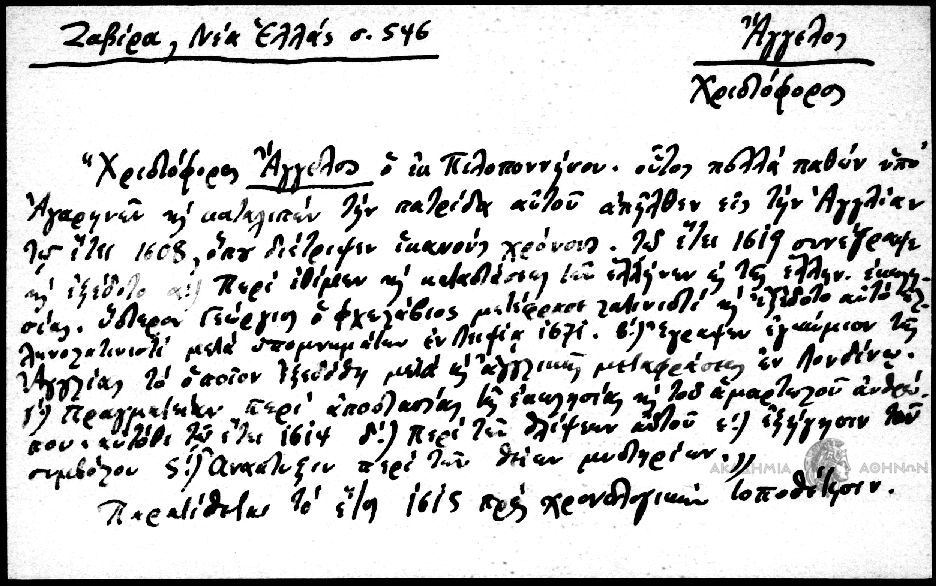 Ζαβίρα, Νέα Ἑλλάς σ. 546
Ἄγγελος
Χριστόφορος
"Χριστόφορος Ἄγγελος ὁ ἐκ Πελοποννήσου. οὗτος πολλά παθών ὑπό
Ἀγαρηνῶν κ̀ καταλιπών τήν πατρίδα αὑτοῦ ἀπῆλθεν εἰς τήν Ἀγγλίαν
τῷ ἔτει 1608, ὅπου διέτριψεν ἱκανούς χρόνους. τῷ ἔτει 1619 συνέγραψε
κ̀ ἐξέδοτο α!) Περί ἐθίμων κ̀ καταστάσεως τῶν ἑλλήνων κ̀ τῆς ἑλλην. ἐκκλη-
σίας. ὕστερον Γεώργιος ὁ Φχελάβιος μετέφρασε λατινιστί κ̀ ἐξέδοτο αὐτό ἑλ-
ληνολατινιστί μετά ὑπομνημάτων ἐν Λειψίᾳ 1671. β!) Ἔγραψεν ἐγκώμιον τῆς
Ἀγγλίας τό ὁποῖον ἐξεδόθη μετά κ̀ ἀγγλικῆς μεταφράσεως ἐν Λονδίνῳ.
γ!) Πραγματείαν περί ἀποστασίας τῆς ἐκκλησίας κ̀ τοῦ ἁμαρτωλοῦ ἀνθρώ-
που. αὐτόθι τῷ ἔτει 1614 δ!) Περί τῶν θλίψεων αὑτοῦ ε!) ἐξήγησιν τοῦ
συμβόλου ς!) Ἀνάπτυξιν περί τῶν θείων μυστηρίων.,,
Παρατίθεται τό ἔτος 1615 πρός χρονολογικήν τοποθέτησιν.
ΑΚΑΔΗΜΙΑ ΑΘΗΝΩΝ